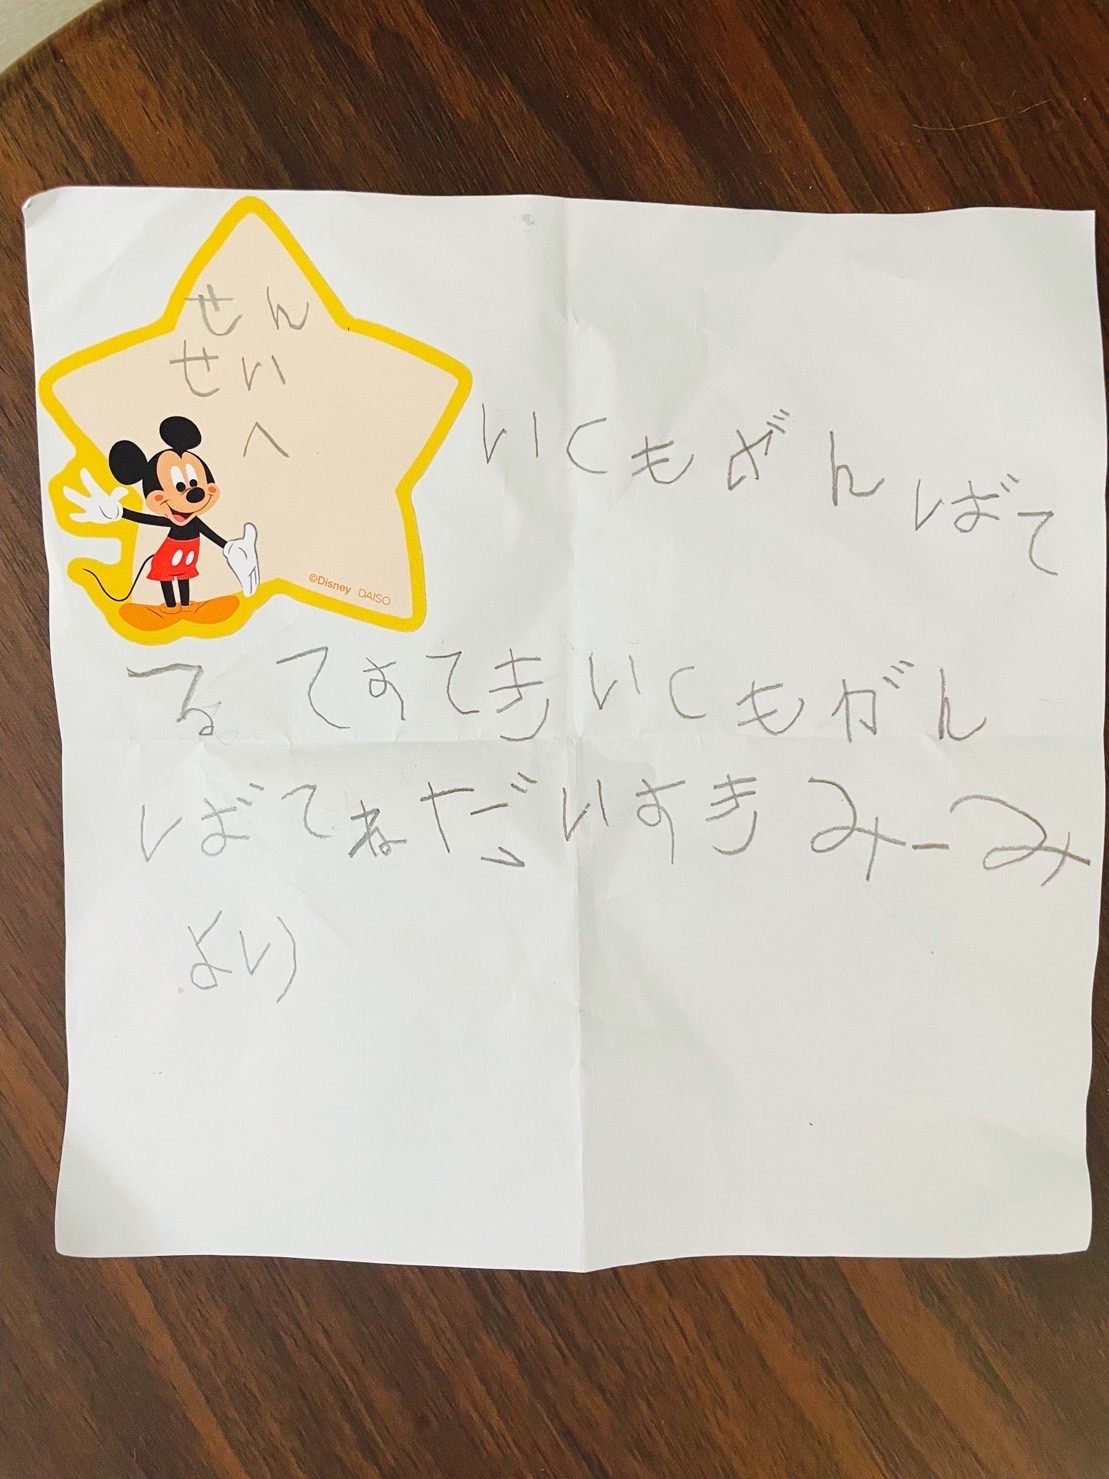 せん
せい
へ
©Disney DAISO
いくもがんばて
る てすてきいくもがん
ばてねだいすきみーみ
より